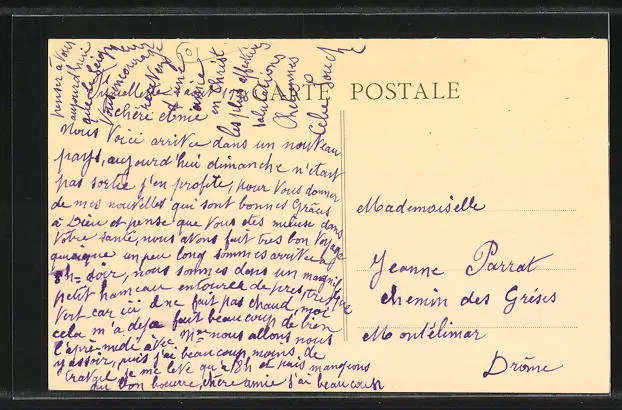 CARTE POSTALE
chéré amie
Nous Voici arrivée dans un nouveau
pays, aujourd'hui dimanche n'etant
pas sortie j'en profite, pour Vous donner
de mes nouvelles qui sont bonnes Grâces
à Dieu et pense que Vous etes mieuse dans
Votre santé, nous avons fait tres bon Voyage
quoique un peu long sommes arrivée a
8h soir, nous sommes dans un magnifique
petit hameau entourée de pres, tres
Vert car ici il ne fait pas chaud, moi
cela m'a deja fait beaucoup de bien
l'apre-midi avec Mme nous allons nous
y assoir, puis j'ai beaucoup moins de
travail je me leve qu'a 8h et puis mangeons
du bon beurre, chère amie j'ai beaucoup
penser à Vous
aujourd'hui
recevez
d'une
amie
en Christ
les plus affectives
salutations
Chretiennes
Mademoiselle
Jeanne Parrat
chemin des Grèses
Montélimar
Drôme